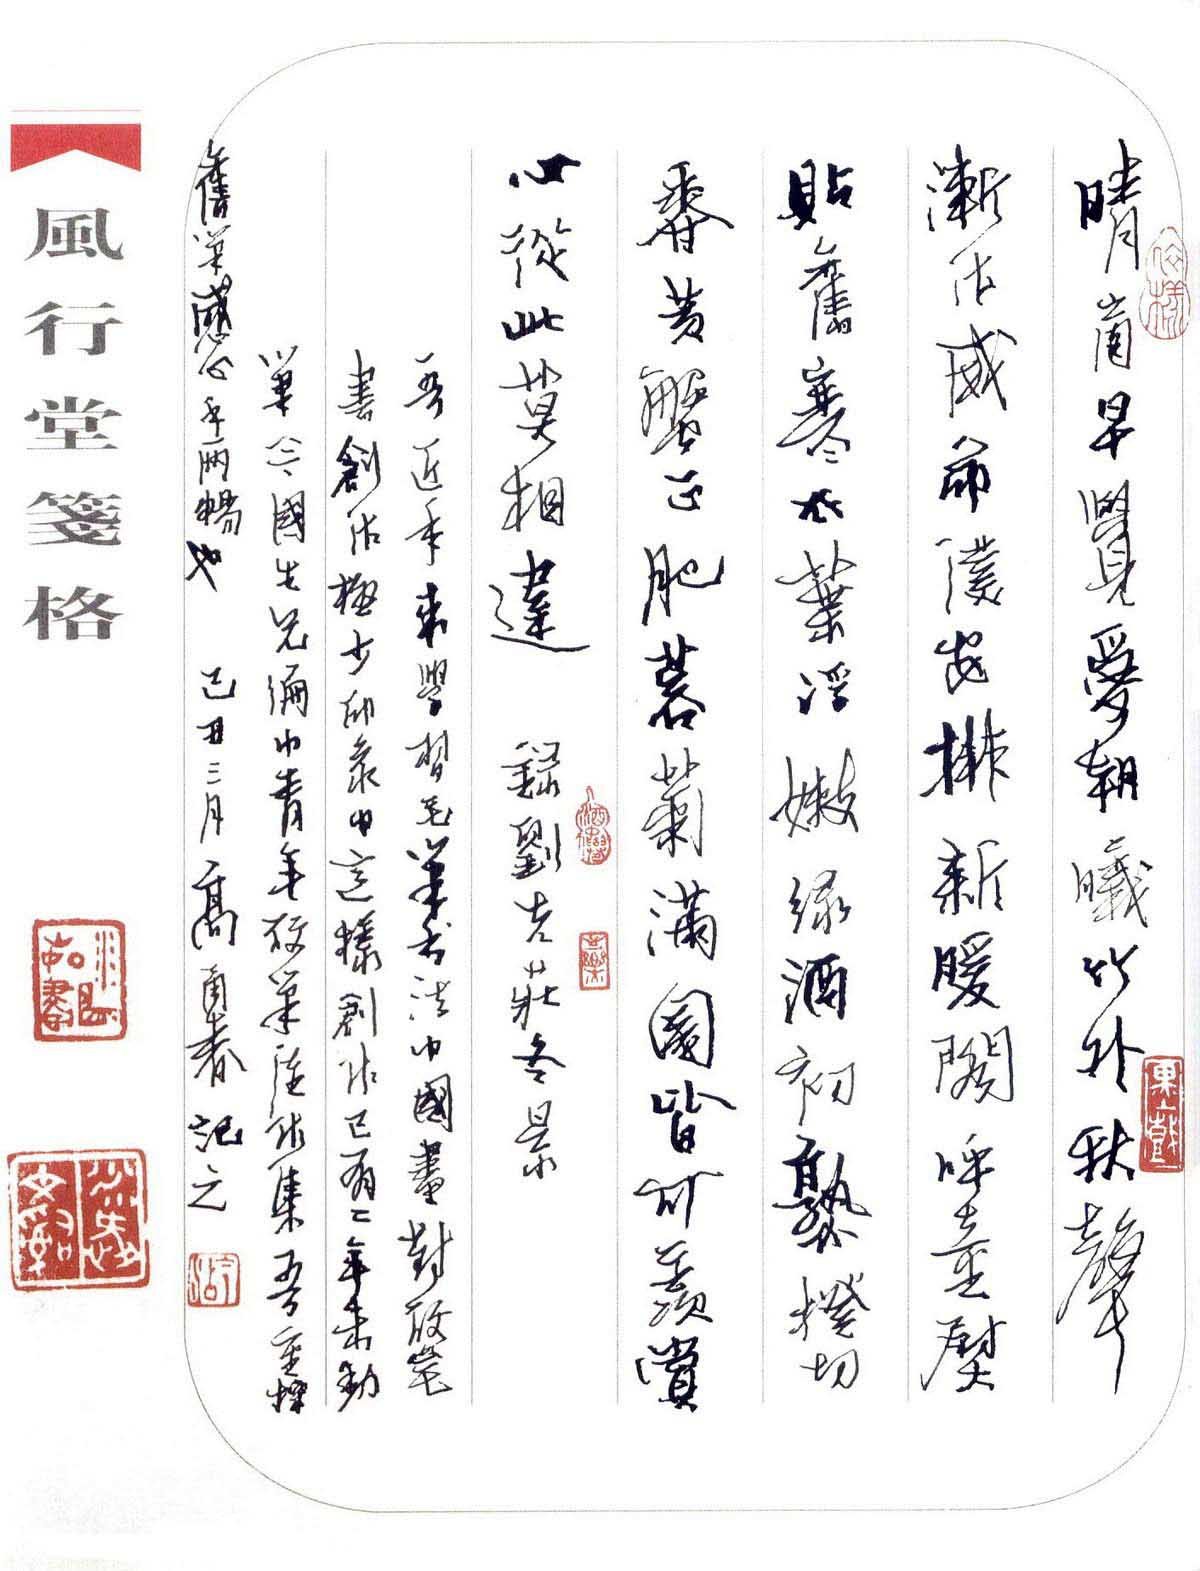 晴窗早覺愛朝曦竹外秋聲
漸作威命僕安排新暖閣呼童熨
貼舊寒衣葉浮嫩綠酒初熟橙切
香黃蟹正肥蓉菊滿園皆可羨賞
心從此莫相違 錄劉克莊冬景
吾近年來學習毛筆書法中國畫對硬筆
書創作極少印象中這樣創作已有二年未動
筆今國生兄編中青年硬筆作集吾重操
舊筆感心手兩暢也 己丑三月 高甬春記之
風行堂箋格